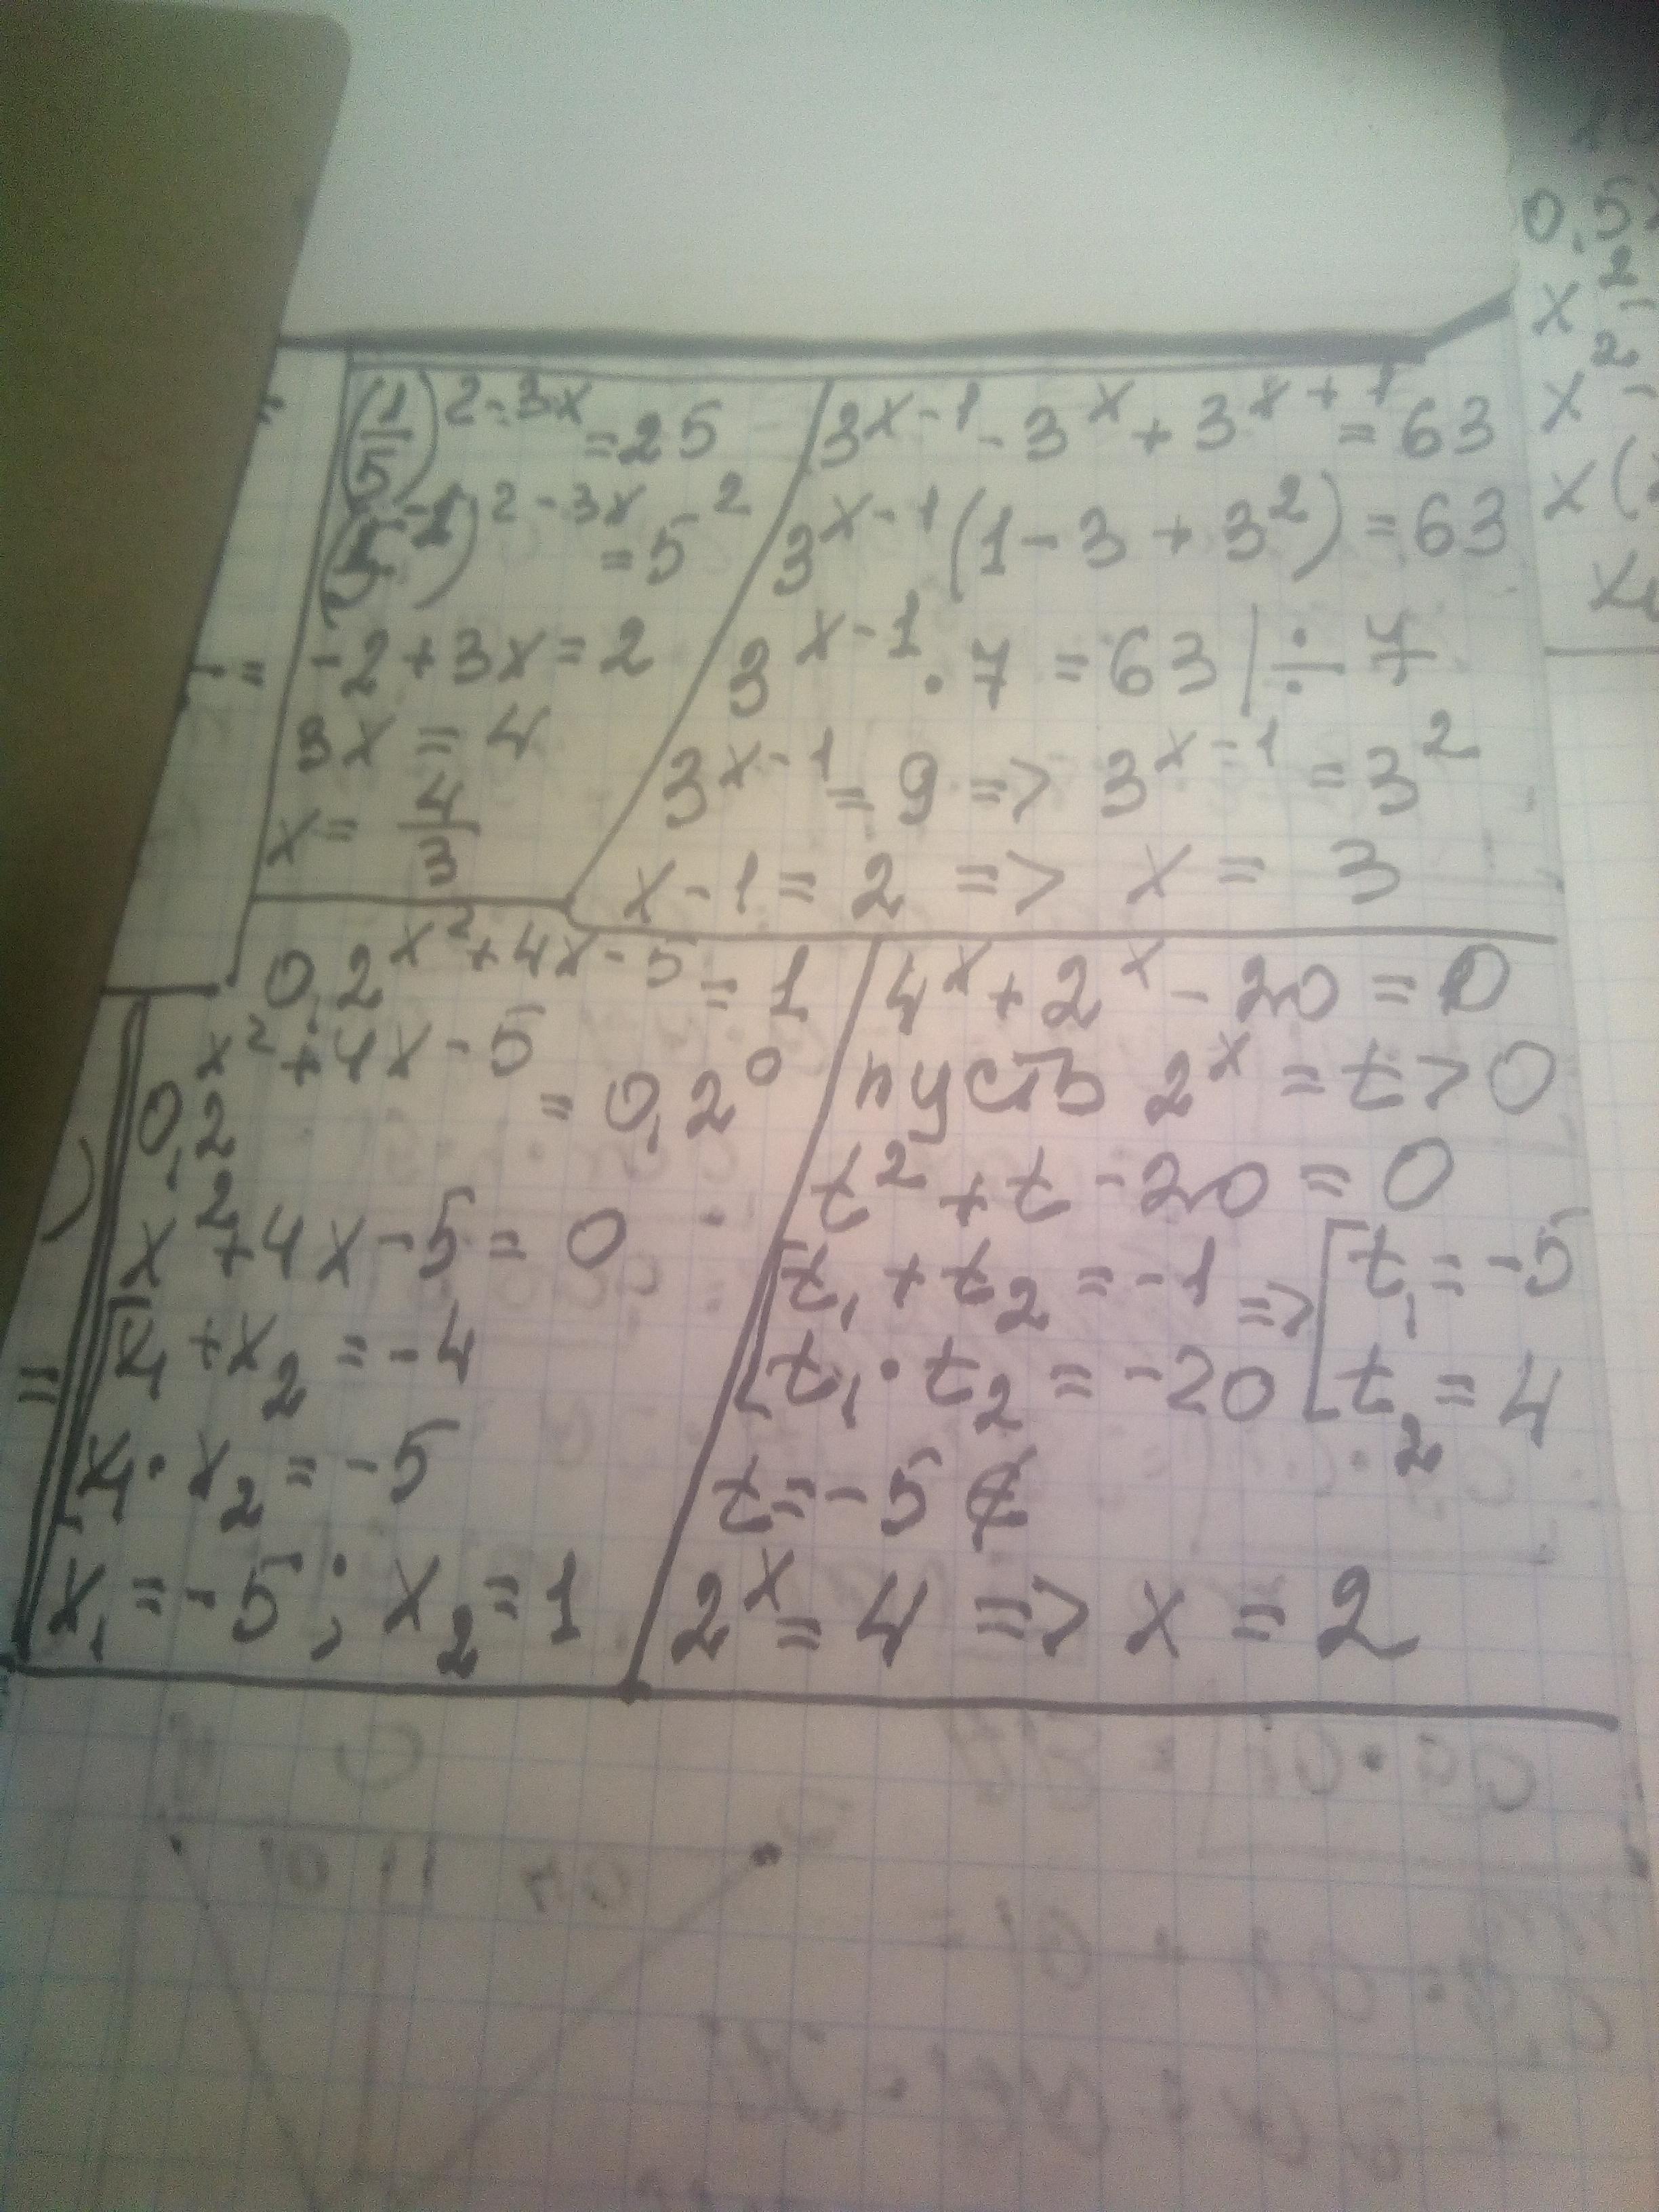 (1/5)^2-3x = 25
(5^-1)^2-3x = 5^2
-2+3x=2
3x = 4
x = 4/3
3^x-1 - 3^x + 3^x+1 = 63
3^x-1 (1-3+3^2) = 63
3^x-1 · 7 = 63 | ÷ 7
3^x-1 = 9 => 3^x-1 = 3^2
x-1 = 2 => x = 3
0,2^x²+4x-5 = 1
0,2^x²+4x-5 = 0,2^0
x²+4x-5 = 0
[x₁+x₂ = -4
[x₁·x₂ = -5
x₁ = -5; x₂ = 1
4^x + 2^x - 20 = 0
пусть 2^x = t > 0
t² + t - 20 = 0
[t₁ + t₂ = -1 => [t₁ = -5
[t₁ · t₂ = -20 [t₂ = 4
t = -5 ∉
2^x = 4 => x = 2
0,5
x²-
x²-
x(